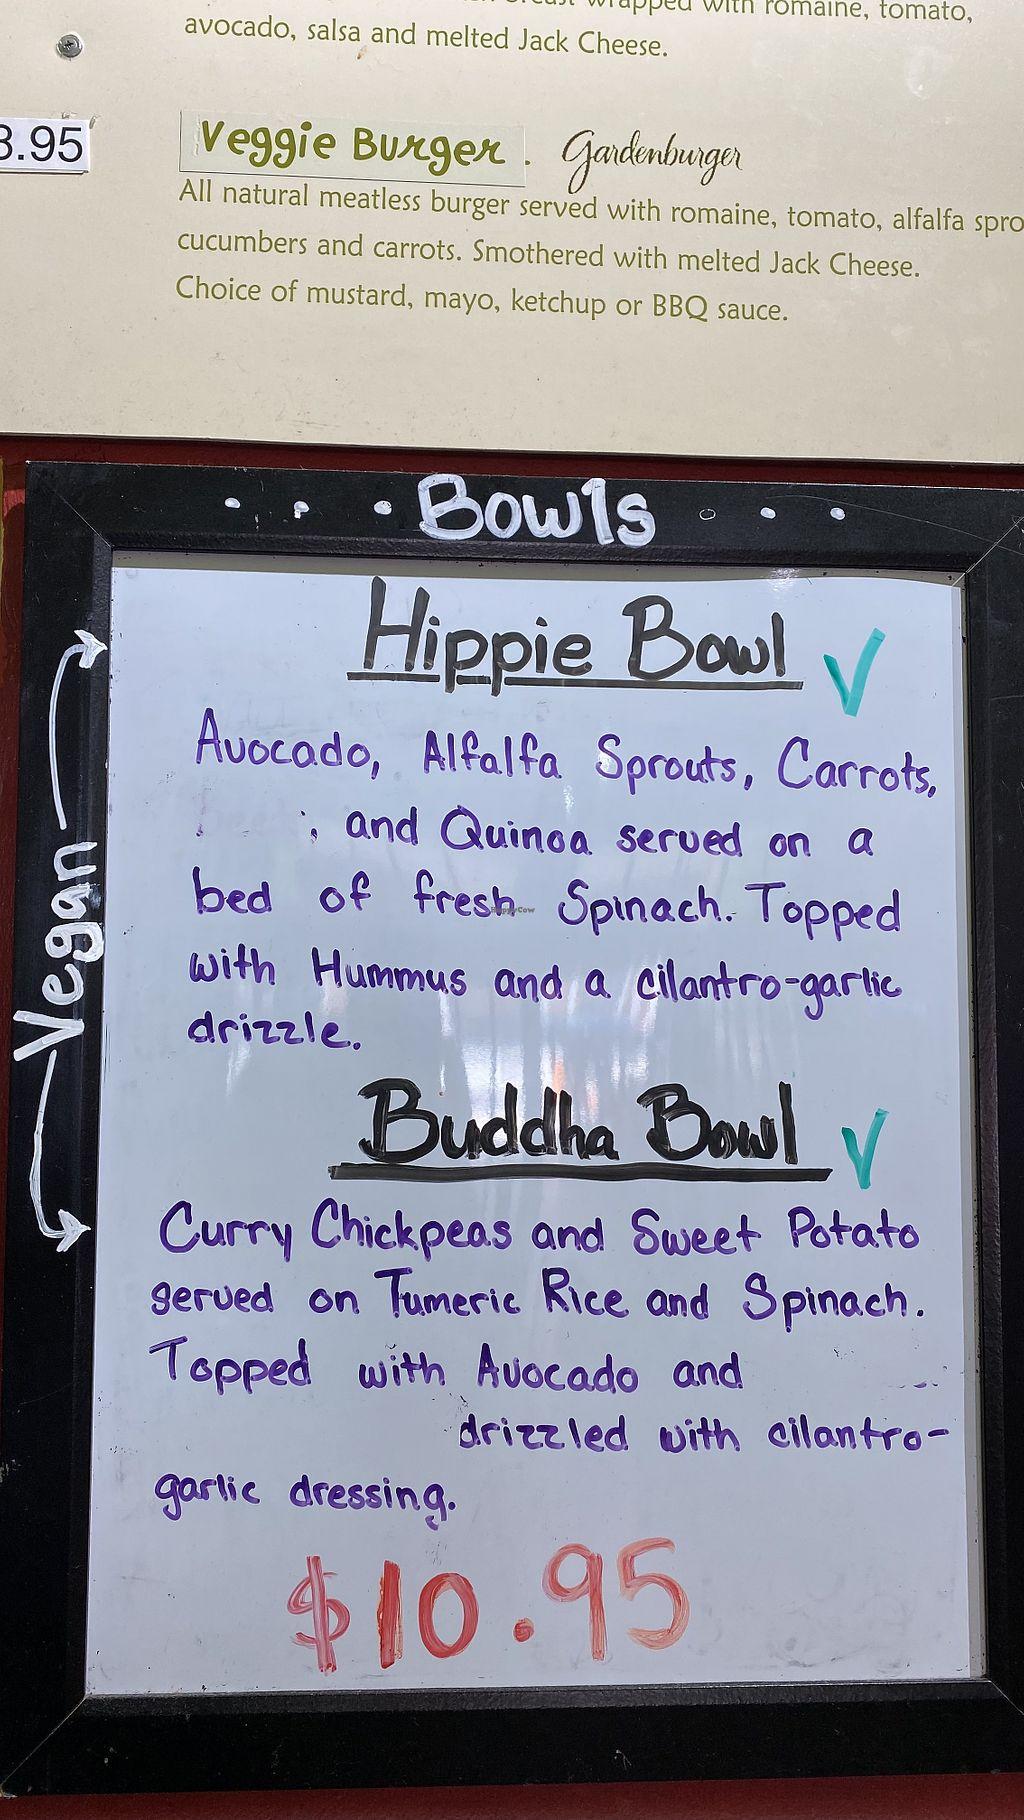 wrapped with romaine, tomato,
avocado, salsa and melted Jack Cheese.
.95
Veggie Burger. Gardenburger
All natural meatless burger served with romaine, tomato, alfalfa spro
cucumbers and carrots. Smothered with melted Jack Cheese.
Choice of mustard, mayo, ketchup or BBQ sauce.
Bowls
Vegan
Hippie Bowl ✓
Avocado, Alfalfa Sprouts, Carrots,
, and Quinoa served on a
bed of fresh Spinach. Topped
with Hummus and a cilantro-garlic
drizzle.
Buddha Bowl ✓
Curry Chickpeas and Sweet Potato
served on Tumeric Rice and Spinach.
Topped with Avocado and
drizzled with cilantro-
garlic dressing.
$10.95
HappyCow